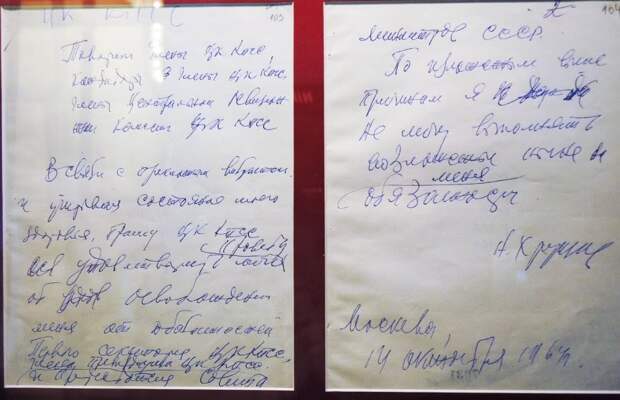 ЦК КПСС
103
Товарищи члены ЦК КПСС,
кандидаты в члены ЦК КПСС,
члены Центральной Ревизион
ной комиссии ЦК КПСС
В связи с преклонным возрастом
и учитывая состояние моего
здоровья, прошу ЦК КПСС
удовлетворить
об освобождении
меня от обязанностей
Первого секретаря ЦК КПСС,
члена Президиума ЦК КПСС
и председателя Совета
104
2
министров СССР.
По изложенным выше
причинам я
не могу выполнять
возложенные ныне на
меня
обязанности
Н. Хрущев
Москва,
14 октября 1964 г.